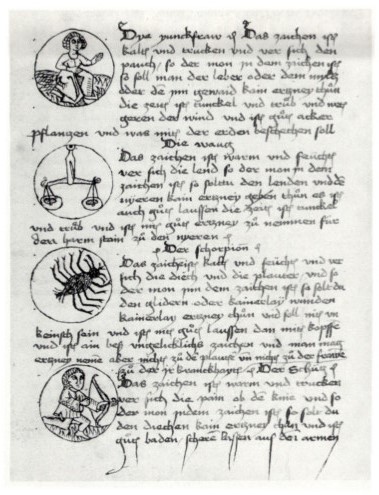 Dye junckfraw Das zaichen ist
kallt vnd trucken vnd ver sich den
pauch so der mon jn dem zaichen ist
so soll man der leber oder dem miltz
oder jnn gewaid kain ertzney thun
die zeit ist tunckel vnd trüb vnd
geren der wind vnd ist gut acker
pflantzen vnd was mit der erden beschechen soll
Die waug
Das zaichen ist warm vnd feücht
ver sich die lend so der mon jn dem
zaichen ist so solltu den lenden
nyeren kain ertzney geben thun es ist
auch gut laussen die zeit ist tunckel
vnd trüb vnd ist gut ertzney zu nemmen für
den harm stain zu den nyeren
Der schorpion
Das zaichen ist kallt vnd feücht vnd ver
sich die vnd die vnd so
der mon jnn dem zaichen ist so solt du
den glidern oder kainerlay wunden
kainerlay ertzney thun vnd soll mit
sein vnd ist nit gut laussen dan mit kopffe
vnd ist ain böß vngelicklichs zaichen vnd man mag
ertzney neme aber nicht zu
zu der kranckhayt Der Schütz
Das zaichen ist warm vnd trucken
ver sich die pain ob de knie vnd so
der mon jndem zaichen ist so solt du
den diechen kain ertzney thun vnd ist
gut baden lassen auß der armen